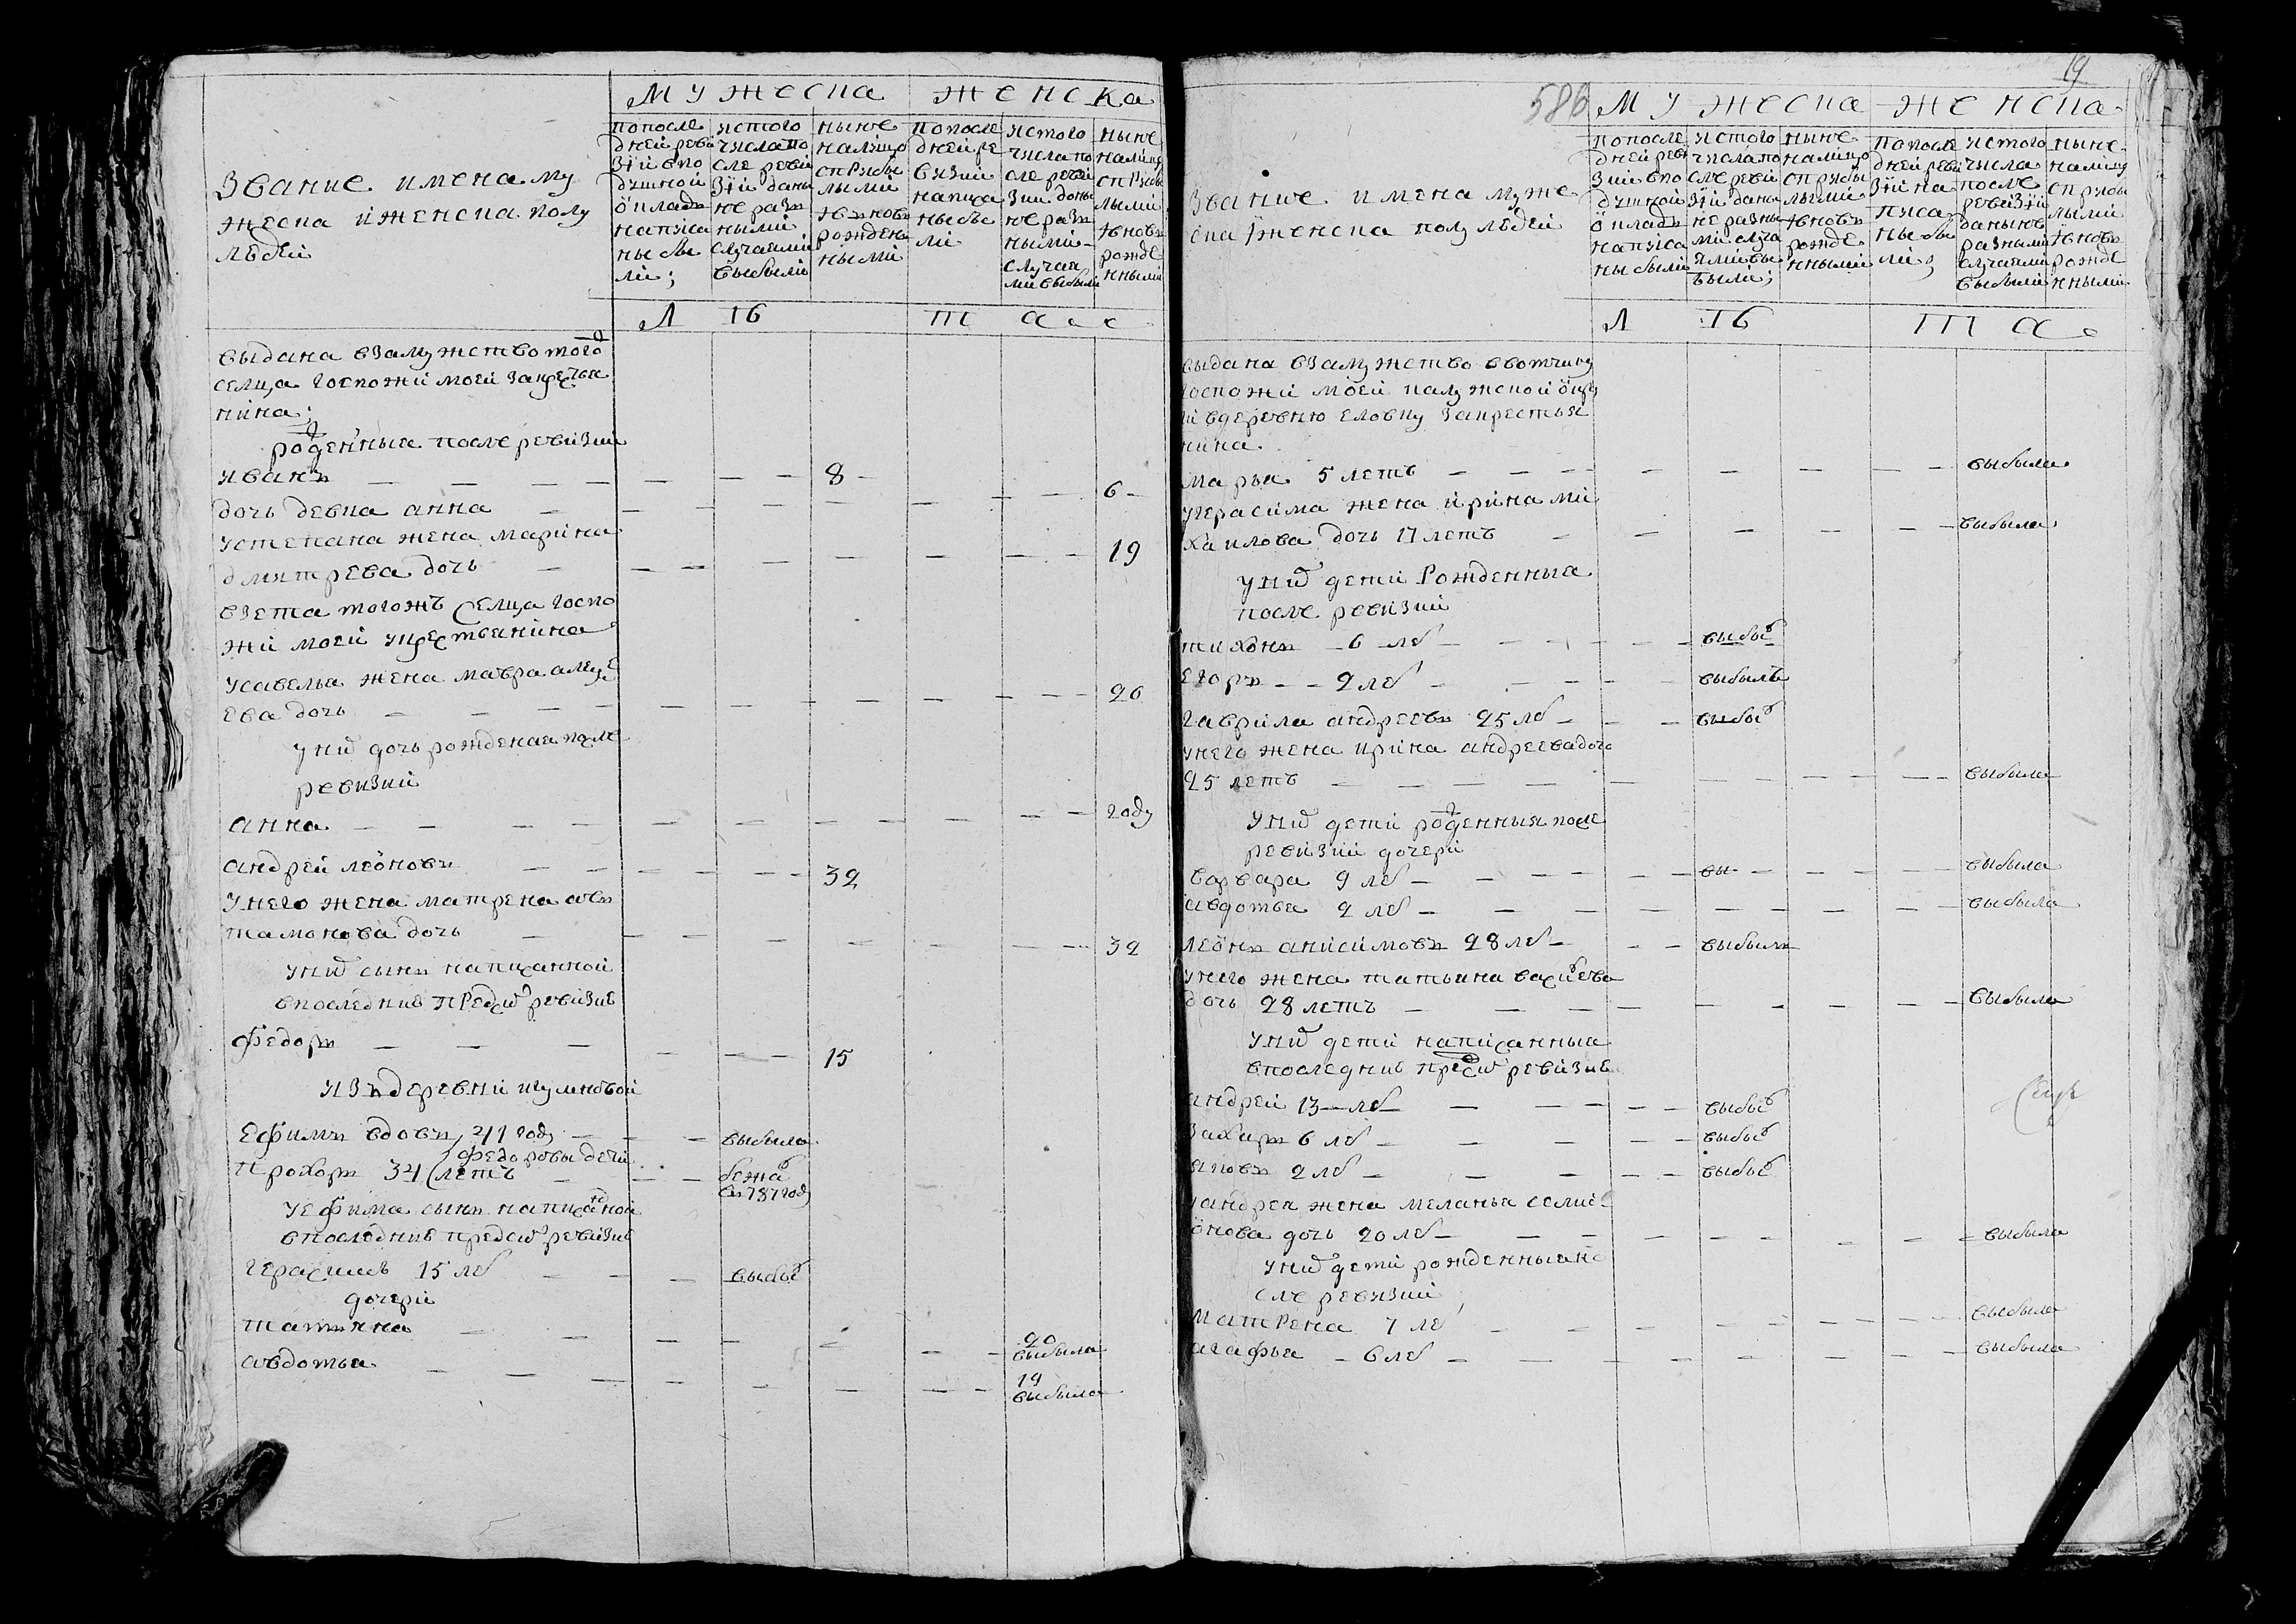 мужеска женска
Звание имена му
жеска и женска полу
людей
попосле
дней реви
зйи впо
душной
окладъ
написа
ны бы
ли;
истого
числа по
сле реви
зйи дане
не разн
ными
случаями
выбыли
ныне
налицо
сприбы
лыми
иновъ
рожден
ными
попосле
дней ре
визии
написа
ны бы
ли
истого
числа по
сле реви
зии доны
не разн
ными
случая
ми выбыли
ныне
налицо
сприбы
лыми
иновъ
рожде
нными
лѣ та
выдана взамужство того
селца госпожи моей закрестья
нина;
рожденныя после ревизии
иванъ 8
дочь девка анна 6
устепана жена марина
дмитрева дочь 19
взета тогожъ селца госпо
жи моей укрестьянина
усавелья жена мавра алеуе
ева дочь 20
уних дочь рожденая после
ревизии
анна году
андрей леоновъ 32
унего жена матрена ав
тамонова дочь 32
уних сынъ написанной
впоследнив предсию ревизив
федоръ 15
изъ деревни шумновой
Ефимъ вдовъ 41 году выбыла
федоровы дети
прохоръ 34 летъ бежал
въ 787 году
уефима сынъ написаной
впоследнив предсию ревизив
герасимъ 15 лет выбыл
дочери
татьяна 20
выбыла
авдотья 19
выбыла
19
586 мужеска женска
Звание имена муже
ска и женска полу людей
попосле
дней реви
зии впо
душной
окладъ
написа
ны были
истого
числа по
сле реви
зйи даны
не разны
ми случа
ями вы
были;
ныне
налицо
сприбы
лыми
иновъ
рожде
нными
попосле
дней реви
зйи на
писа
ны бы
ли;
истого
числа
после
ревизйи
даныне
разными
случаями
выбыли
ныне
налицо
сприбы
лыми
иновъ
рожде
нными
лѣ та
выдана взамужство ввотчину
госпожи моей калужской окру
ги вдеревню еловку закрестья
нина
марья 5 летъ выбыла
угерасима жена ирина ми
хаилова дочь 17 летъ выбыла
уних дети рожденныя
после ревизии
тихонъ 6 лет выбыл
егоръ 2 лет выбылъ
гаврила андреевъ 25 лет выбыл
унего жена ирина андреева дочь
25 летъ выбыла
уних дети рожденныя после
ревизии дочери
варвара 9 лет вы выбыла
авдотья 2 лет выбыла
леонъ анисимовъ 28 лет выбылъ
унего жена татьяна васильева
дочь 28 летъ выбыла
уних дети написанныя
впоследнив предсию ревизив
андрей 13 лет выбыл
захаръ 6 лет выбыл
яковъ 2 лет выбыл
уандрея жена меланья семи
онова дочь 20 лет выбыла
уних дети рожденныя по
сле ревизии
матрена 7 лет выбыла
агафья 6 лет выбыла